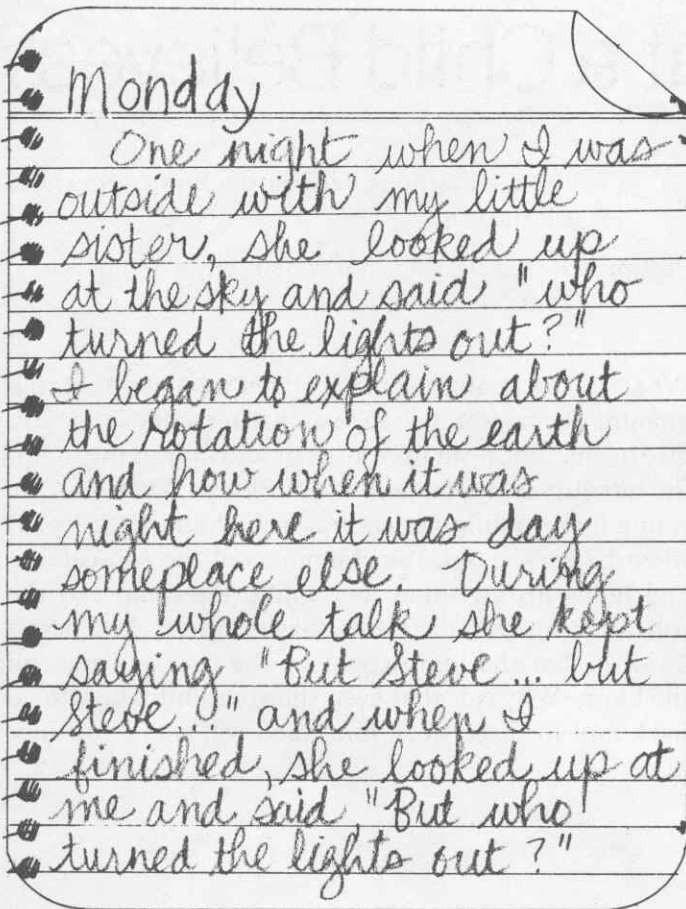 Child Believes
Monday
One night when I was
outside with my little
sister, she looked up
at the sky and said "who
turned the lights out?"
I began to explain about
the rotation of the earth
and how when it was
night here it was day
someplace else. During
my whole talk she kept
saying "But Steve... but
Steve..." and when I
finished, she looked up at
me and said, "But who
turned the lights out?"